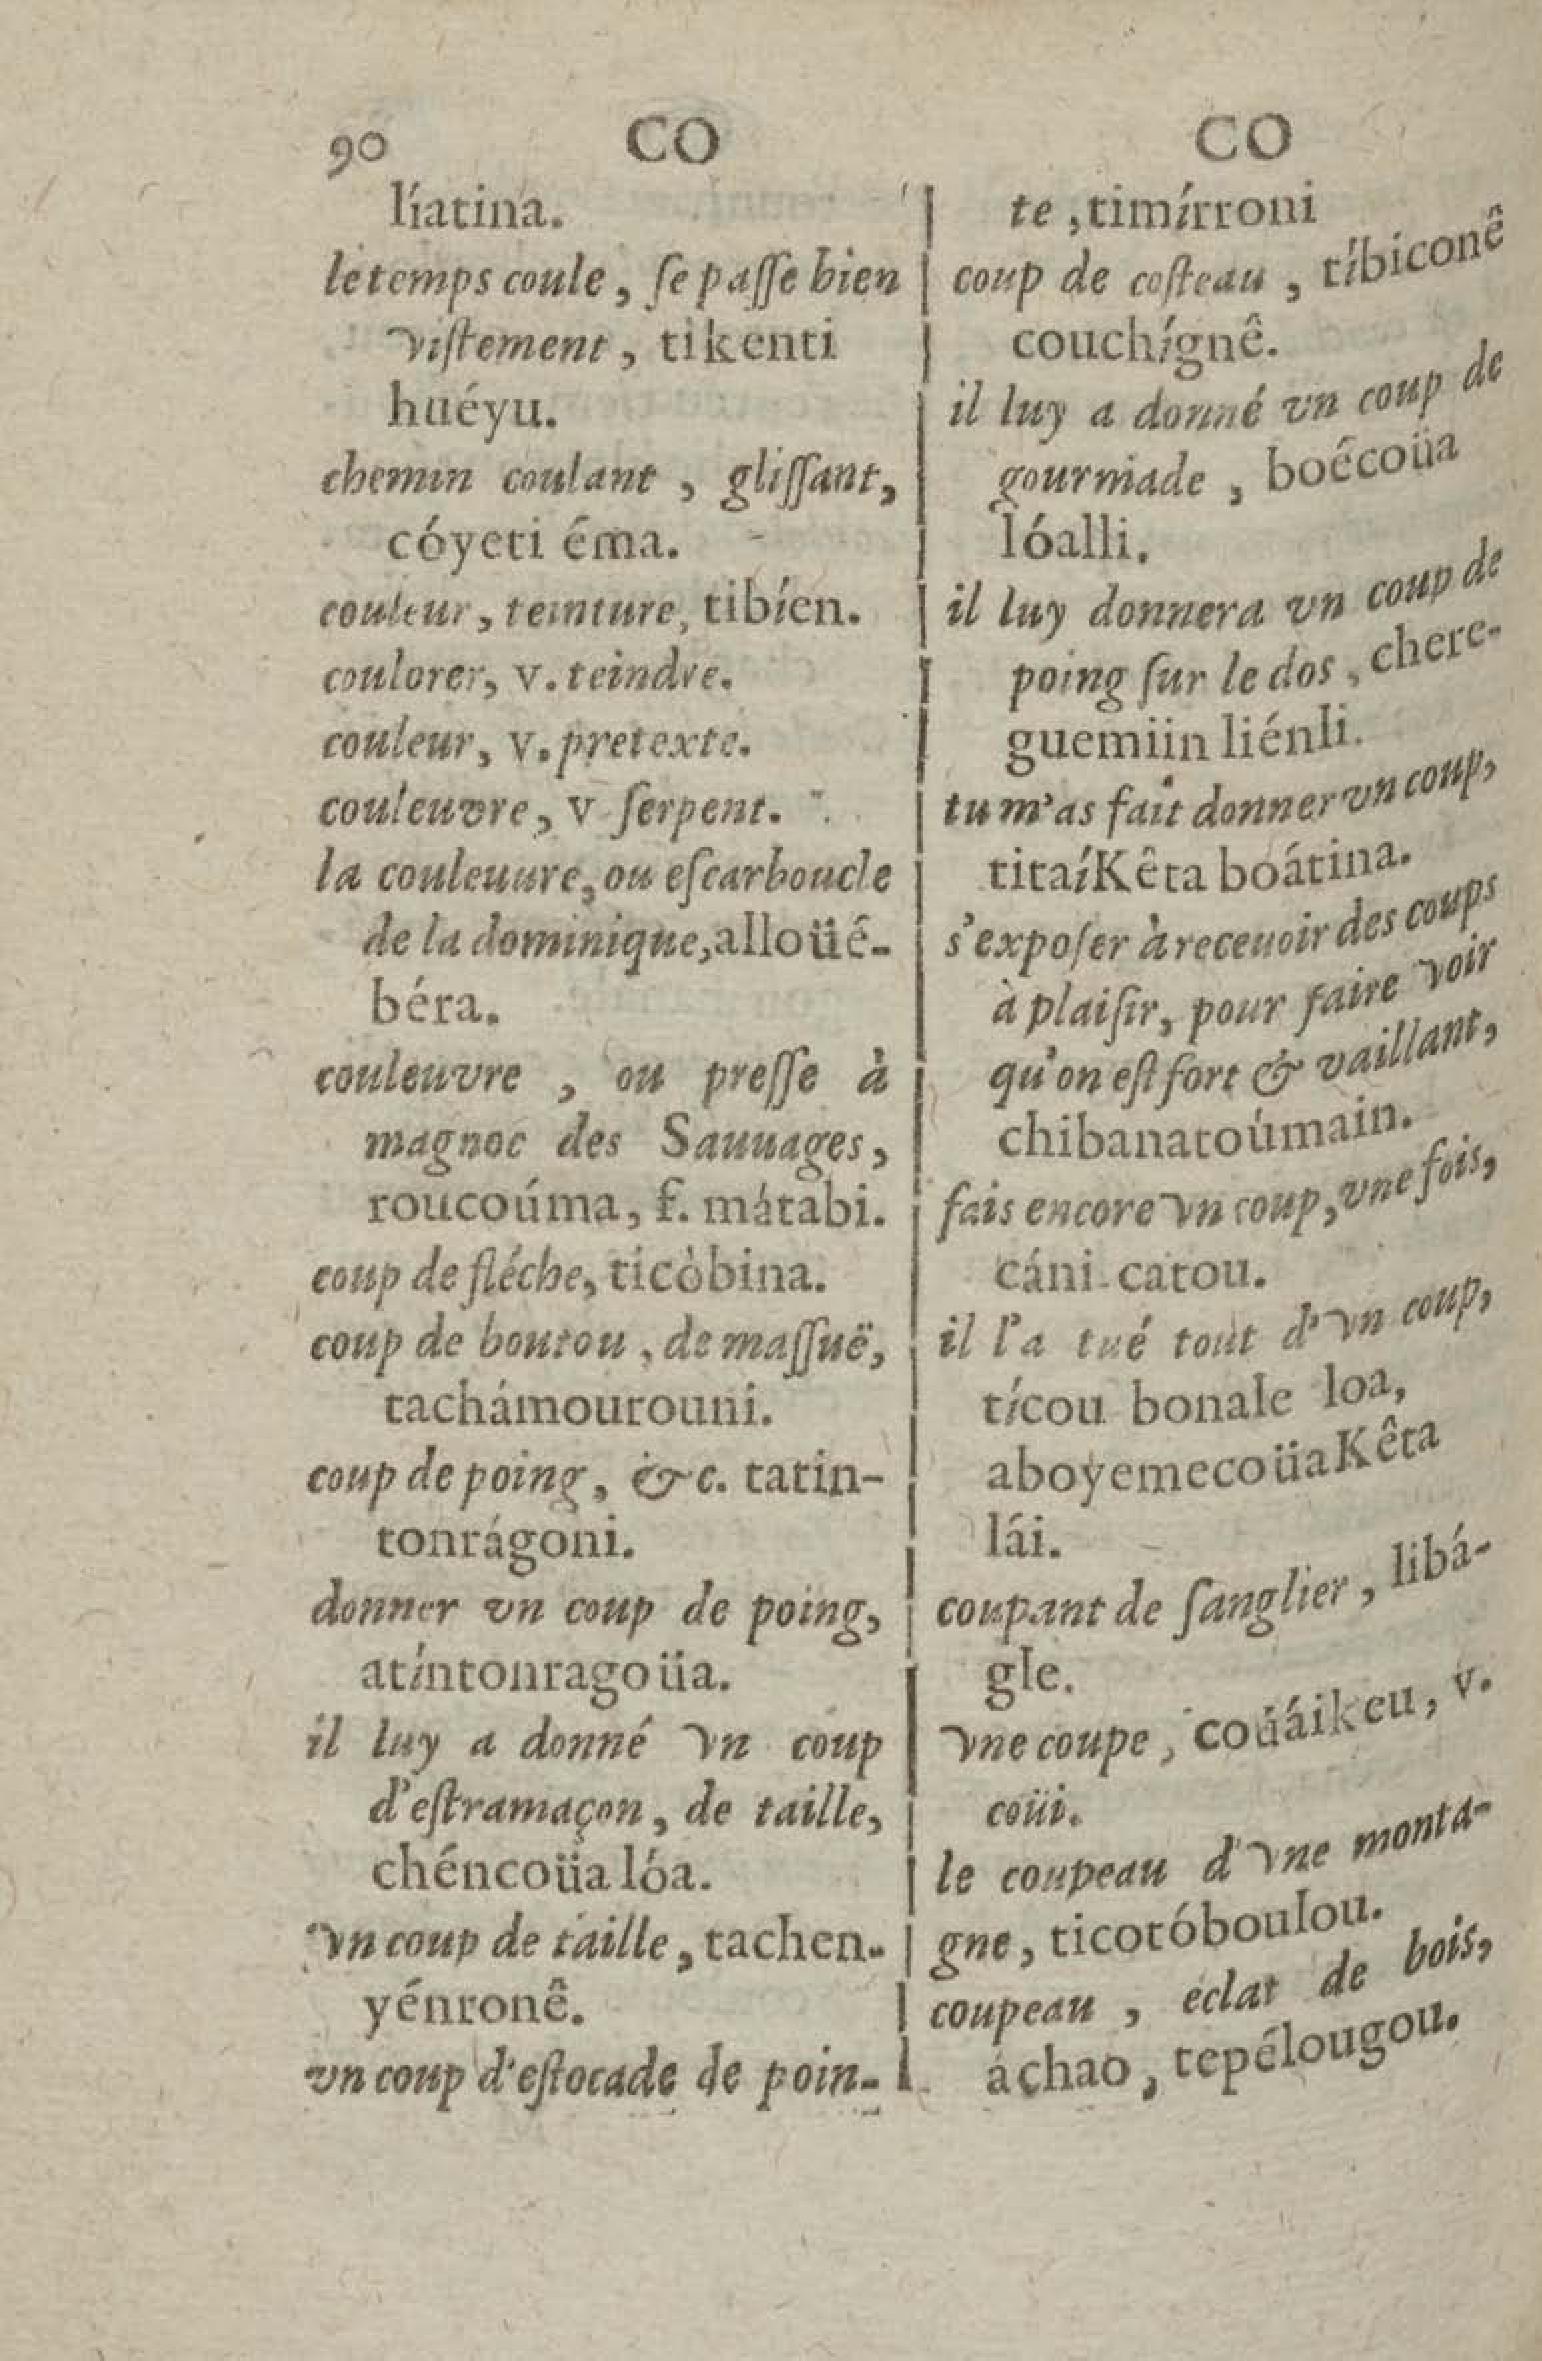 90 CO CO
líatina.
le temps coule, ſe paſſe bien
viſtement, tikenti
huéyu.
chemin coulant, gliſſant,
cóyeti éma.
couleur, teinture, tibíen.
coulorer, v. teindre.
couleur, v. pretexte.
couleuvre, v ſerpent.
la couleuure, ou eſcarboucle
de la dominique, alloüé-
béra.
couleuvre, ou preſſe à
magnoc des Sauuages,
roucoúma, f. mátabi.
coup de fléche, ticòbina.
coup de boutou, de maſſuë,
tachámourouni.
coup de poing, &c. tatin-
tonrágoni.
donner vn coup de poing,
atíntonragoüa.
il luy a donné vn coup
d'eſtramaçon, de taille,
chéncoüa lóa.
vn coup de taille, tachen-
yénronê.
vn coup d'eſtocade de poin-
te, timírroni
coup de coſteau, tíbiconê
couchígnê.
il luy a donné vn coup de
gourmade, boécoüa
lóalli.
il luy donnera vn coup de
poing ſur le dos, chere-
guemiin liénli.
tu m'as fait donner vn coup,
titaíKêta boátina.
s'expoſer à receuoir des coups
à plaiſir, pour faire voir
qu'on eſt fort & vaillant,
chibanatoúmain.
fais encore vn coup, vne fois,
cáni catou.
il l'a tué tout d'vn coup,
tícou bonale loa,
aboyemecoüaKêta
lái.
coupant de ſanglier, libá-
gle.
vne coupe, coüáikeu, v.
coüi.
le coupeau d'vne monta-
gne, ticotóboulou.
coupeau, éclat de bois,
áchao, tepélougou.